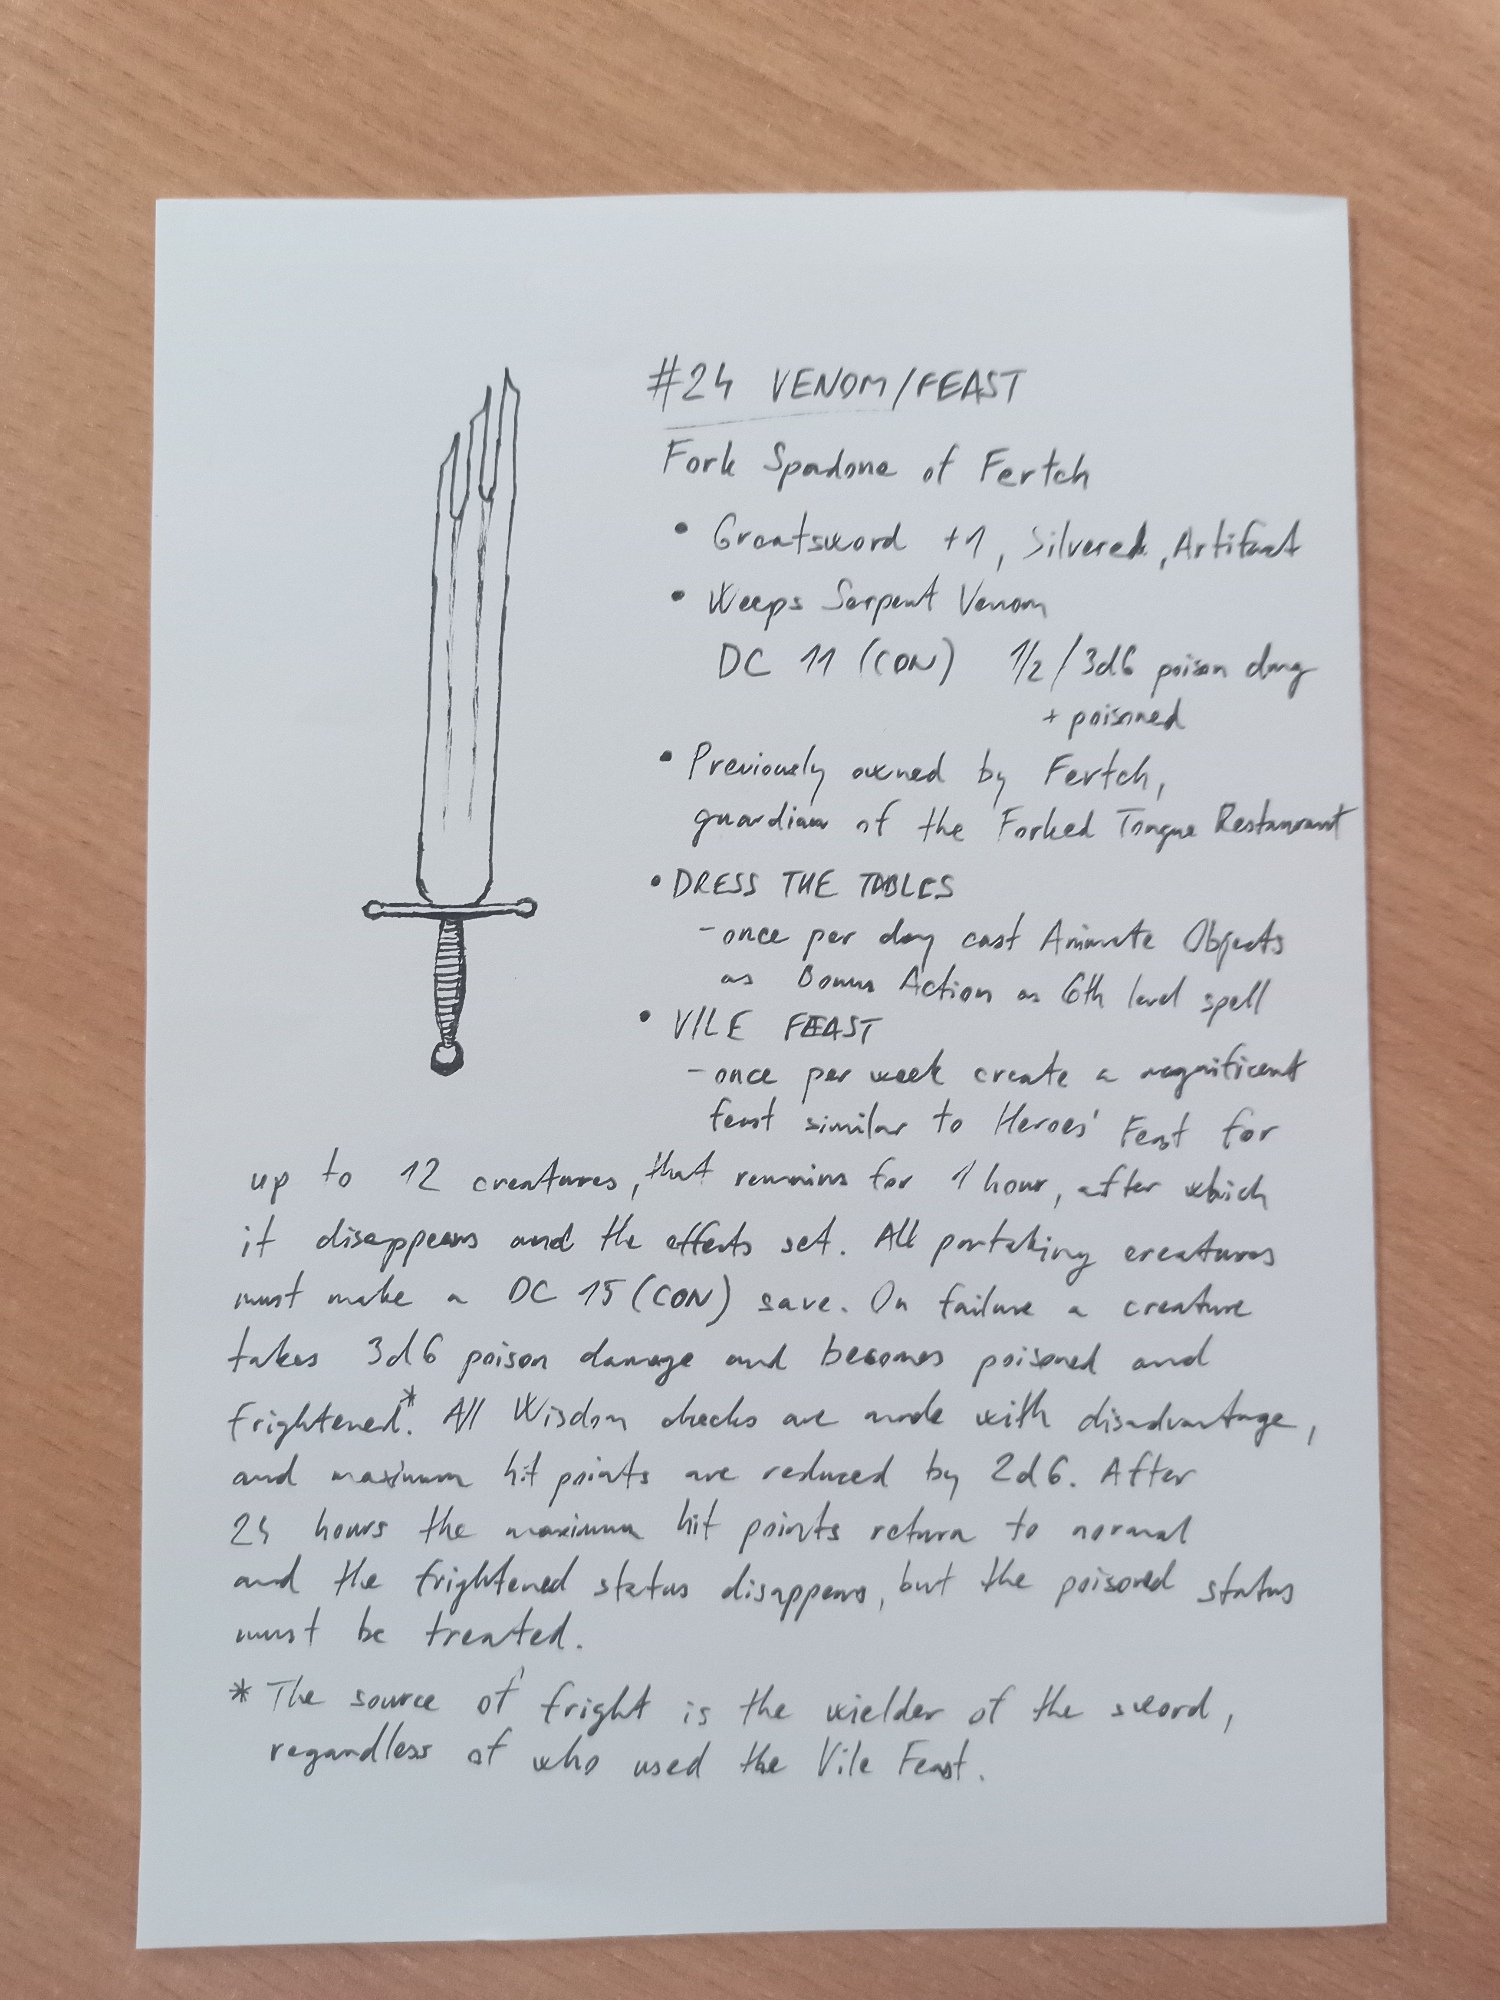 #24 VENOM/FEAST
Fork Spadone of Fertch
• Greatsword +1, Silvered, Artifact
• Weeps Serpent Venom
DC 11 (CON) 1/2 / 3d6 poison dmg
+ poisoned
• Previously owned by Fertch,
guardian of the Forked Tongue Restaurant
• DRESS THE TABLES
- once per day cast Animate Objects
as Bonus Action as 6th level spell
• VILE FEAST
- once per week create a magnificent
feast similar to Heroes' Feast for
up to 12 creatures, that remains for 1 hour, after which
it disappears and the effects set. All partaking creatures
must make a DC 15 (CON) save. On failure a creature
takes 3d6 poison damage and becomes poisoned and
frightened*. All Wisdom checks are made with disadvantage,
and maximum hit points are reduced by 2d6. After
24 hours the maximum hit points return to normal
and the frightened status disappears, but the poisoned status
must be treated.
* The source of fright is the wielder of the sword,
regardless of who used the Vile Feast.